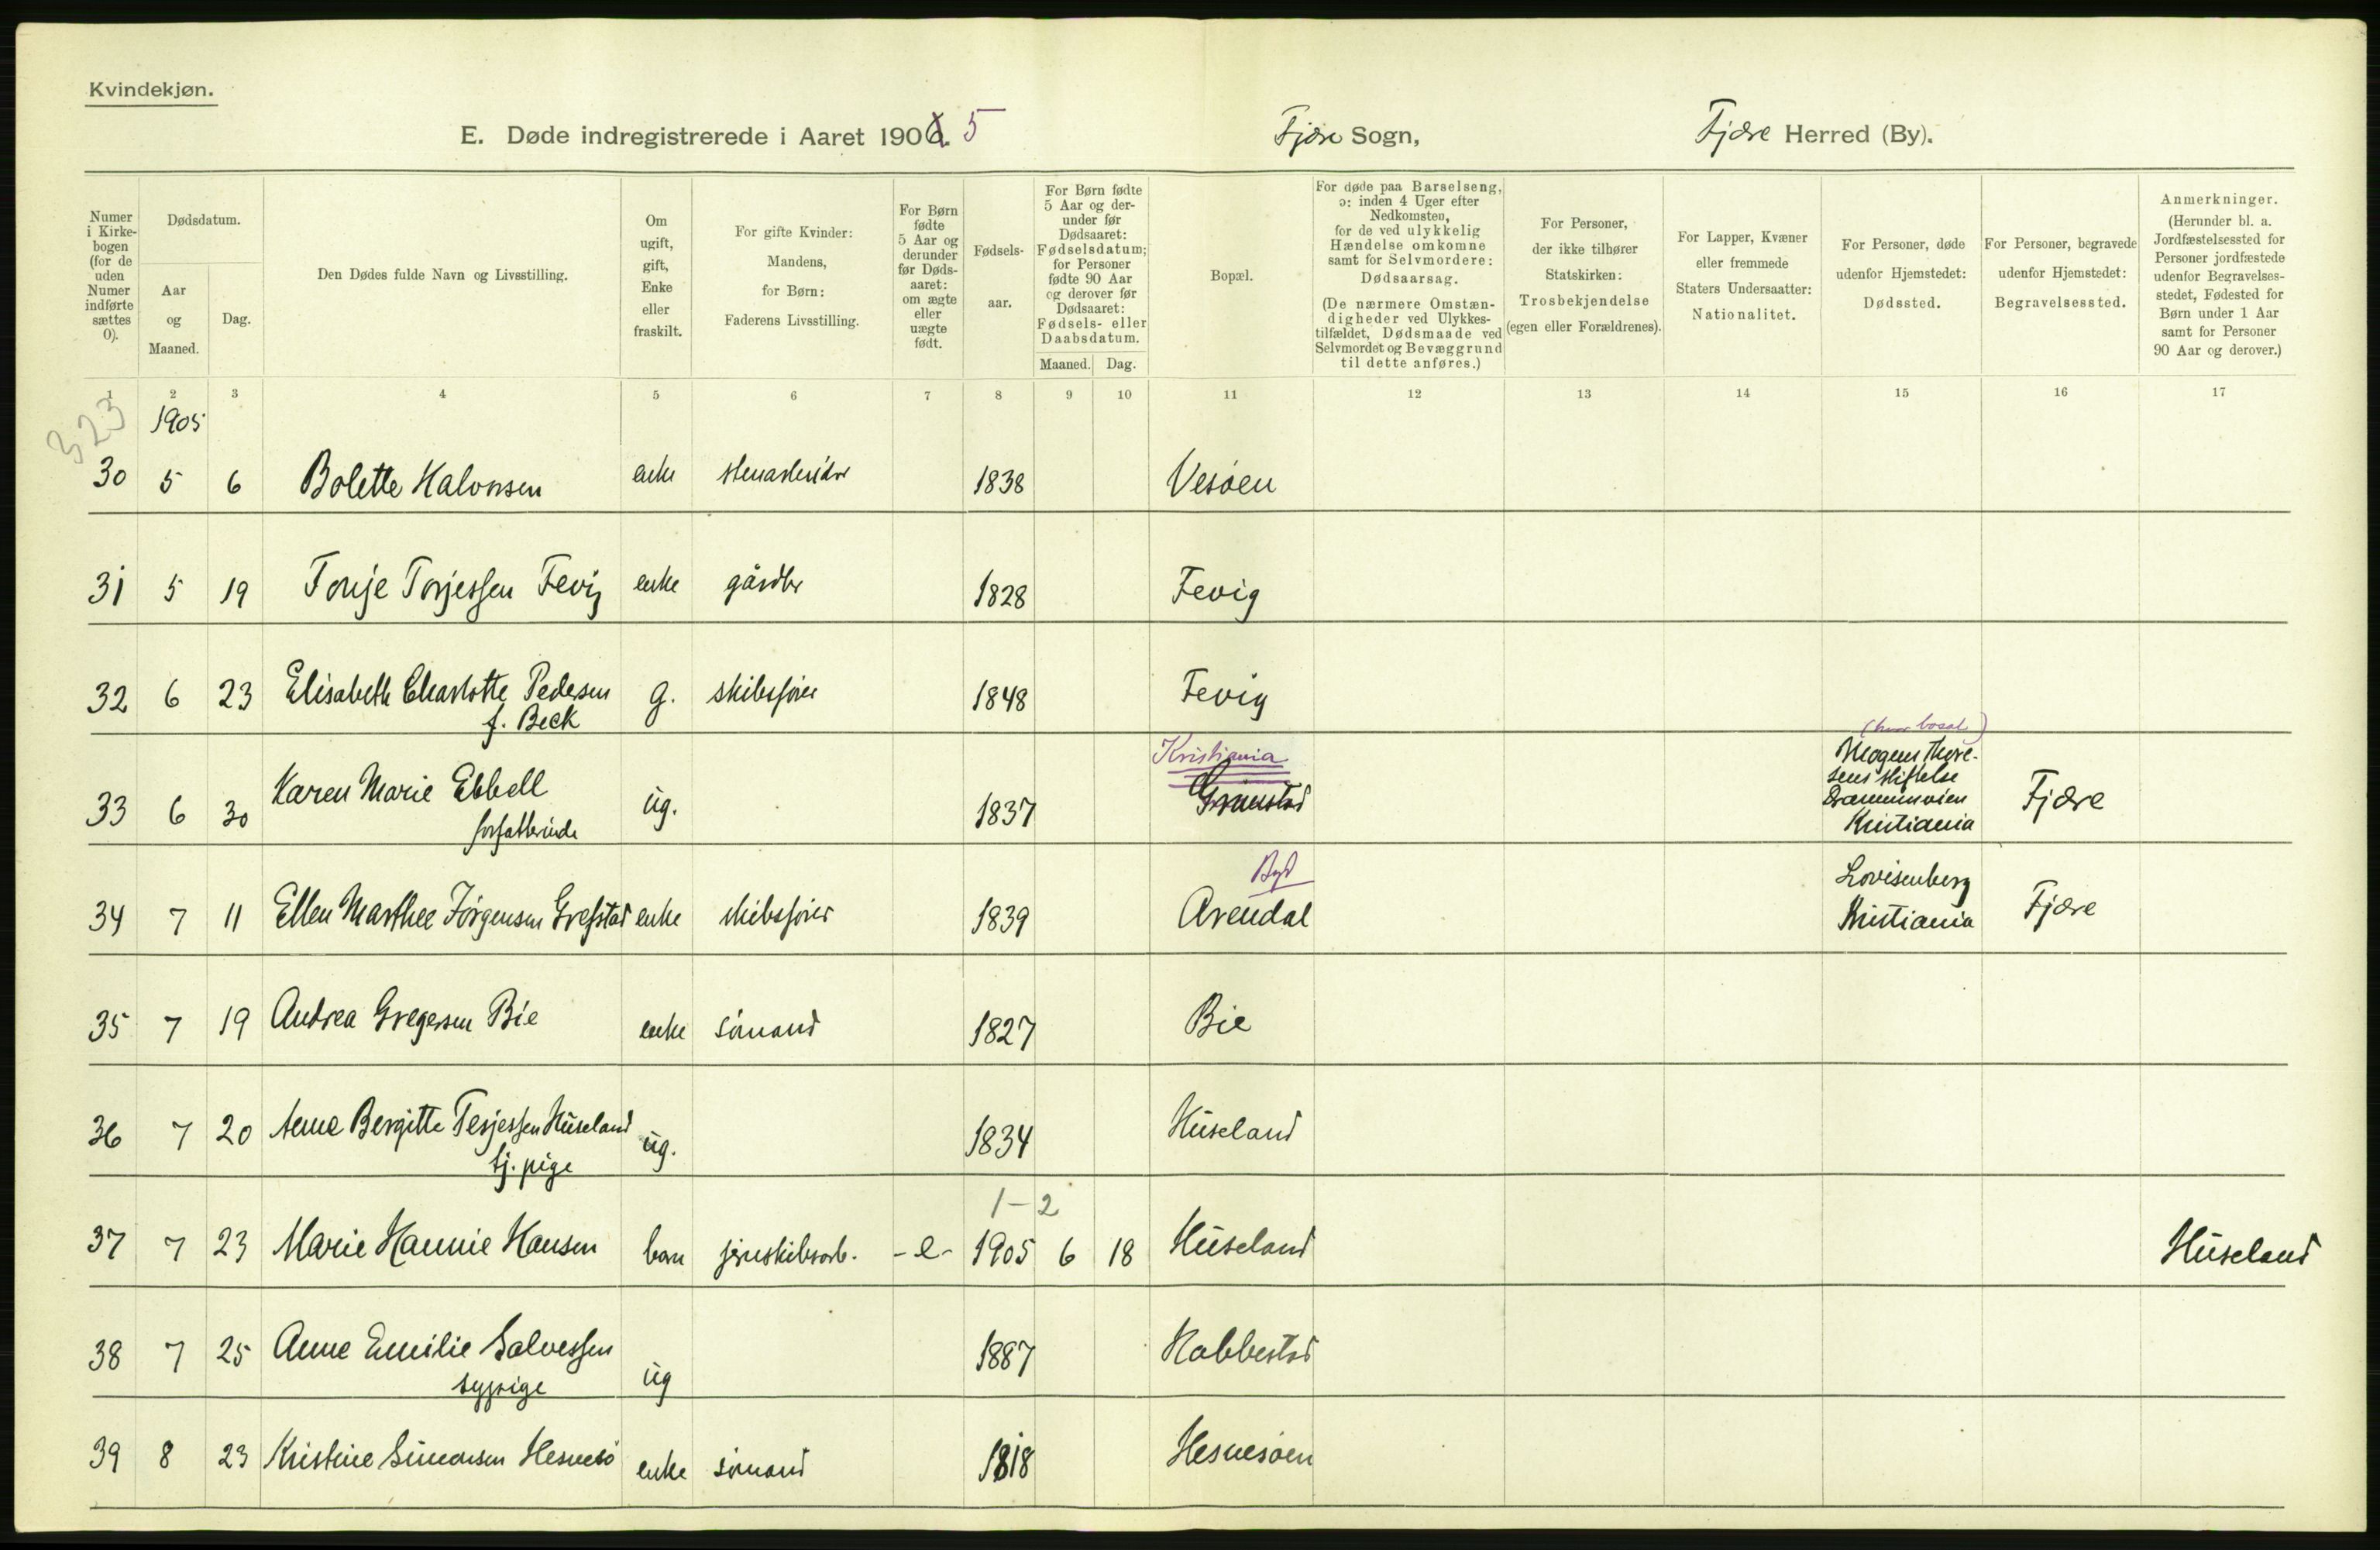 Kvindekjøn.
E. Døde indregistrerede i Aaret 190 5 Fjære Sogn, Fjære Herred (By).
Numer i Kirke-bogen (for de uden Numer indførte sættes 0).
Dødsdatum.
Aar og Maaned.
Dag.
Den Dødes fulde Navn og Livsstilling.
Om ugift, gift, Enke eller fraskilt.
For gifte Kvinder: Mandens, for Børn: Faderens Livsstilling.
For Børn fødte 5 Aar og derunder før Døds-aaret: om ægte eller uægte født.
Fødsels-aar.
For Børn fødte 5 Aar og der-under før Dødsaaret: Fødselsdatum; for Personer fødte 90 Aar og derover før Dødsaaret: Fødsels- eller Daabsdatum.
Maaned. Dag.
Bopæl.
For døde paa Barselseng, ɔ: inden 4 Uger efter Nedkomsten, for de ved ulykkelig Hændelse omkomne samt for Selvmordere: Dødsaarsag.
(De nærmere Omstæn-digheder ved Ulykkes-tilfældet, Dødsmaade ved Selvmordet og Bevæggrund til dette anføres.)
For Personer, der ikke tilhører Statskirken: Trosbekjendelse (egen eller Forældrenes).
For Lapper, Kvæner eller fremmede Staters Undersaatter: Nationalitet.
For Personer, døde udenfor Hjemstedet: Dødssted.
For Personer, begravede udenfor Hjemstedet: Begravelsessted.
Anmerkninger. (Herunder bl. a. Jordfæstelsessted for Personer jordfæstede udenfor Begravelses-stedet, Fødested for Børn under 1 Aar samt for Personer 90 Aar og derover.)
1 2 3 4 5 6 7 8 9 10 11 12 13 14 15 16 17
323
1905
30 5 6 Bolette Halvorsen enke 1838 Vesøen
31 5 19 Tonje Torjessen Fevig enke gårdbr 1828 Fevig
32 6 23 Elisabeth Charlotte Pedersen g. skibsfører 1848 Fevig
f. Beck
(hvor bosat)
Kristiania
33 6 30 Karen Marie Ebbell ug. 1837 Grimstad Mogens Thore-
sens stiftelse
Drammensveien
Kristiania Fjære
forfatterinde
By
34 7 11 Ellen Marthee Jørgensen Grefstad enke skibsfører 1839 Arendal Lovisenberg
Kristiania Fjære
35 7 19 Andrea Gregersen Bie enke sømand 1827 Bie
36 7 20 Anne Bergitte Terjessen Huseland ug. 1834 Huseland
tj. pige
1-2
37 7 23 Marie Hannie Hansen barn jernskibsarb. -e- 1905 6 18 Huseland Huseland
38 7 25 Anne Emilie Salvessen ug 1887 Habbestad
sypige
39 8 23 Kristine Simonsen Hesnesø enke sømand 1818 Hesnesøen